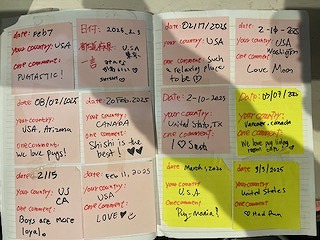 date: Feb 7
your country: USA
one comment:
PUGTASTIC!
日付: 2025.2.3
都道府県: USA
一言
date: 02/17/2025
your country: USA
one comment: such
a relaxing place
to be
date: 2-10-2025
your country: USA
Washington
one comment:
Love, Moon
date: 08/02/2025
your country:
USA, Arizona
one comment:
We love pugs!
date: 20 Feb. 2025
your country:
CANADA
one comment:
Shishi is the
best!
Date: 2-10-2025
your country:
United States, TX
one comment:
Date:
your country:
Vancouver, Canada
one comment:
We love pug
date: 2/15
your country: US
CA
one comment:
Boys are more
loyal.
date: Feb 11, 2025
your country:
USA
one comment:
LOVE
date: March 1, 2025
your country:
U.S.A
one comment:
Pug-mania!
date: 3/3/2025
your country:
United States
one comment:
Had Fun